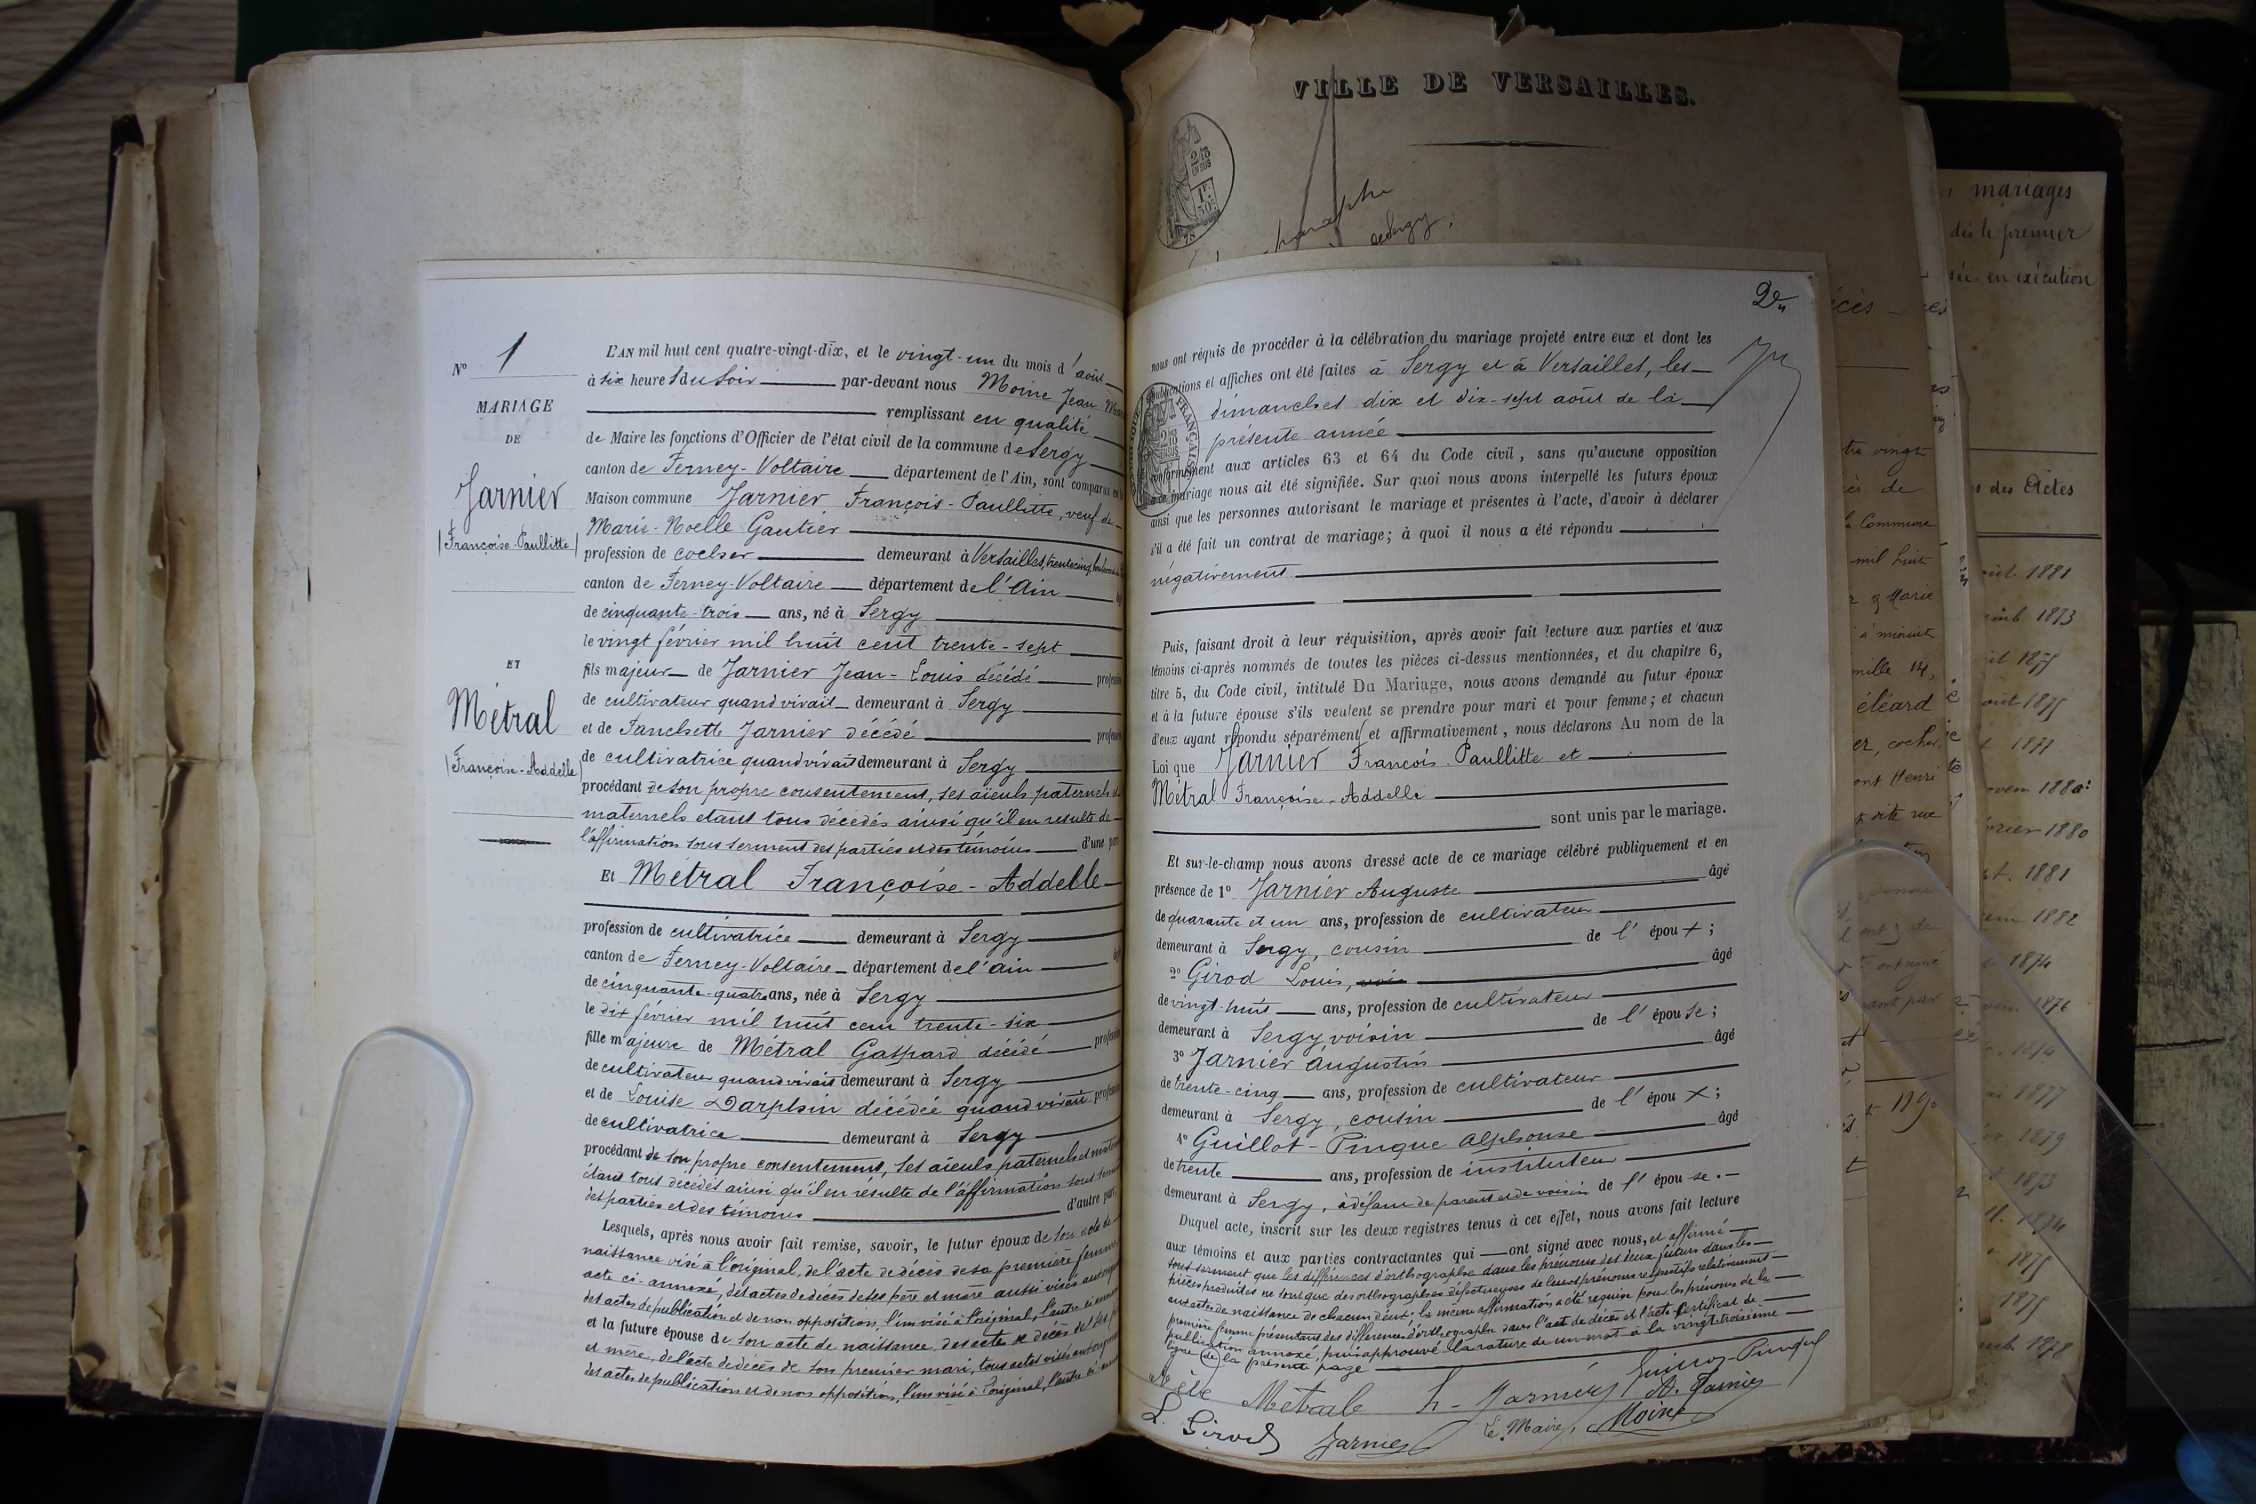 N° 1
MARIAGE
DE
Jarnier
(Françoise-Paullitte)
ET
Métral
(Françoise-Addelle)
L'AN mil huit cent quatre-vingt-dix, et le vingt-un du mois d'août
à six heures du soir par-devant nous Moine Jean
remplissant en qualité
de Maire les fonctions d'Officier de l'état civil de la commune de Sergy
canton de Ferney-Voltaire département de l'Ain, sont comparus
Maison commune Jarnier François-Paullitte, veuf de
Marie-Noelle Gautier
profession de cocher demeurant à Versailles, trente cinq
canton de Ferney-Voltaire département de l'Ain
de cinquante-trois ans, né à Sergy
le vingt février mil huit cent trente-sept
fils majeur de Jarnier Jean-Louis décédé profession
de cultivateur quand vivait demeurant à Sergy
et de Fanchette Jarnier décédé profession
de cultivatrice quand vivait demeurant à Sergy
procédant de son propre consentement, ses aïeuls paternels et
maternels étant tous décédés ainsi qu'il en résulte de
l'affirmation sous serment des parties et des témoins d'une part
Et Métral Françoise-Addelle
profession de cultivatrice demeurant à Sergy
canton de Ferney-Voltaire département de l'ain
de cinquante-quatre ans, née à Sergy
le dix février mil huit cent trente-six
fille majeure de Métral Gaspard décédé profession
de cultivateur quand vivait demeurant à Sergy
et de Louise Darphin décédée quand vivait profession
de cultivatrice demeurant à Sergy
procédant de son propre consentement, ses aïeuls paternels et
étant tous décédés ainsi qu'il en résulte de l'affirmation sous
des parties et des témoins d'autre part.
Lesquels, après nous avoir fait remise, savoir, le futur époux de son acte de
naissance visé à l'original, de l'acte de décès de sa première femme
acte ci-annexé, des actes de décès de ses père et mère aussi visés
des actes de publication et de non opposition, l'un visé à l'original, l'autre
et la future épouse de son acte de naissance, des acte de décès de ses
et mère, de l'acte de décès de son premier mari, tous actes visés
des actes de publication et de non opposition, l'un visé à l'original, l'autre
VILLE DE VERSAILLES.
2e
nous ont réquis de procéder à la célébration du mariage projeté entre eux et dont les
publications et affiches ont été faites à Sergy et à Versailles, les
dimanches dix et dix-sept août de la
présente année
conformément aux articles 63 et 64 du Code civil, sans qu'aucune opposition
mariage nous ait été signifiée. Sur quoi nous avons interpellé les futurs époux
ainsi que les personnes autorisant le mariage et présentes à l'acte, d'avoir à déclarer
s'il a été fait un contrat de mariage; à quoi il nous a été répondu
négativement
Puis, faisant droit à leur réquisition, après avoir fait lecture aux parties et aux
témoins ci-après nommés de toutes les pièces ci-dessus mentionnées, et du chapitre 6,
titre 5, du Code civil, intitulé Du Mariage, nous avons demandé au futur époux
et à la future épouse s'ils veulent se prendre pour mari et pour femme; et chacun
d'eux ayant répondu séparément et affirmativement, nous déclarons Au nom de la
Loi que Jarnier François Paullitte et
Métral Françoise-Addelle
sont unis par le mariage.
Et sur-le-champ nous avons dressé acte de ce mariage célébré publiquement et en
présence de 1° Jarnier Auguste âgé
de quarante et un ans, profession de cultivateur
demeurant à Sergy, cousin de l'époux;
2° Girod Louis, âgé
de vingt-huit ans, profession de cultivateur
demeurant à Sergy, voisin de l'épouse;
3° Jarnier Augustin âgé
de trente-cinq ans, profession de cultivateur
demeurant à Sergy, cousin de l'époux;
4° Guillot-Pingue Alphonse âgé
de trente ans, profession de instituteur
demeurant à Sergy, à défaut de parents et de voisin de l'épouse.
Duquel acte, inscrit sur les deux registres tenus à cet effet, nous avons fait lecture
aux témoins et aux parties contractantes qui ont signé avec nous, et affirmé
sous serment que les différences d'orthographe dans les prénoms des deux futurs dans les
pièces produites ne sont que des orthographes défectueuses de leurs prénoms respectifs relativement
aux actes de naissance de chacun d'eux; la même affirmation a été requise pour les prénoms de la
première femme présentant des différences d'orthographe dans l'acte de décès et l'acte certificat de
publication annexé; puis approuvé la rature de un mot à la vingt-troisième
ligne de la présente page
Metrale
Guillot-Pingue
A. Jarnier
L. Girod
Jarnier
Le Maire, Moine
mariages
dès le premier
en exécution
des Actes